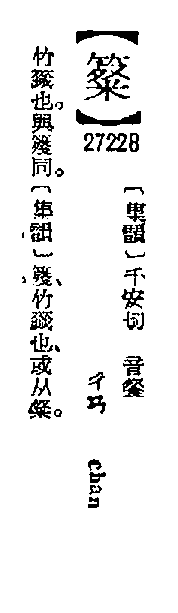 【䉔】
27228
〔集韻〕千安切　音餐
ㄘㄢ　chan
竹籤也。與同。〔集韻〕、竹籤也、或从粲。